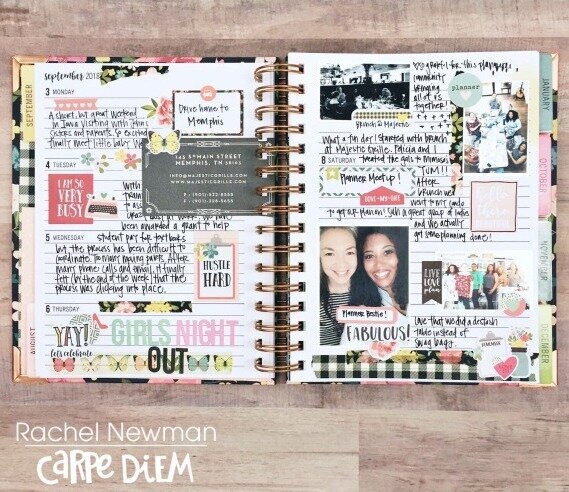 september 2018
SEPTEMBER
3 MONDAY
A short, but great weekend
in Iowa visiting with
Sisters and parents. So excited
finally meet little baby
Drive home to
Memphis
4 TUESDAY
I AM SO
VERY
BUSY
been awarded a grant to help
145 S MAIN STREET
MEMPHIS, TN 38103
INFO@MAJESTICGRILLE.COM
WWW.MAJESTICGRILLE.COM
5 WEDNESDAY
student pay for textbooks
but the process has been difficult to
coordinate. Too many moving parts. After
many phone calls and emails, it finally
felt (by the end of the week) that the
process was clicking into place.
HUSTLE
HARD
6 THURSDAY
YAY!
let's celebrate
GIRLS NIGHT
OUT
AUGUST
grateful for this
community
bringing
all of us
together!
planner
Brunch @ Majestic
What a fun day! Started with brunch
at Majestic Grille. Felicia and I
8 SATURDAY
treated the gals to mimosas
YUM!!
Planner Meetup!
LOVE MY LIFE
After
brunch we
went to my condo
to get our plan on! Such a great group of ladies
and we actually
got some planning done!
Planner Bestie!
FABULOUS!
LIVE
LOVE
Love that we did a destash
table instead of
Swag bags.
REMEMBER
JANUARY
OCTOBER
DECEMBER
Rachel Newman
CARPE DIEM